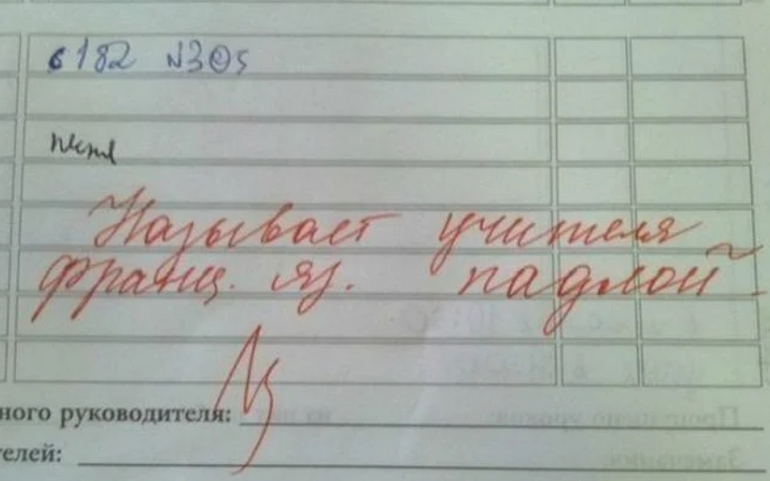 с 182 N305
песня
Называет учителя
франц. яз. падлой.
ного руководителя:
телей: